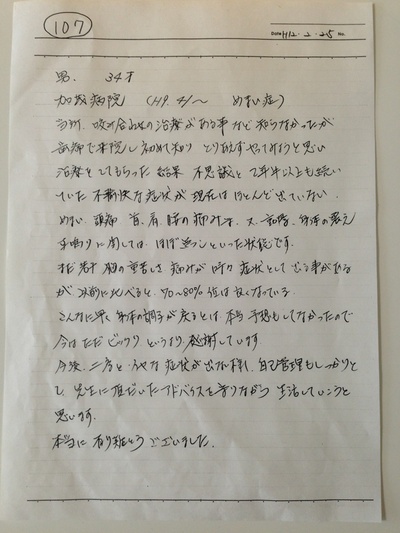 107
Date H12・2・25 No.
男. 34才
加茂病院 (H9.4/～ めまい症)
当所、咬み合わせの治療がある事など知らなかったが
当院で来院し初めて知り とりあえずやってみようと思い
治療をしてもらった結果 不思議と2年半以上も続い
ていた不愉快な症状が現在はほとんど出ていない.
めまい、頭痛 首、肩、
耳鳴りに関しては、ほぼ
まだ若干 胸の重苦しさ 痛みが時々症状として出る事がある
が 以前に比べると、70～80%位は良くなっている.
こんなに早く身体の調子が戻るとは本当予想もしてなかったので
今はただビックリというより、感謝しています
今後、二度とうな症状が出ない様、自己管理もしっかりと
し、先生に頂だいたアドバイスを守りながら 生活していこうと
思います.
本当に有り難とうございました.